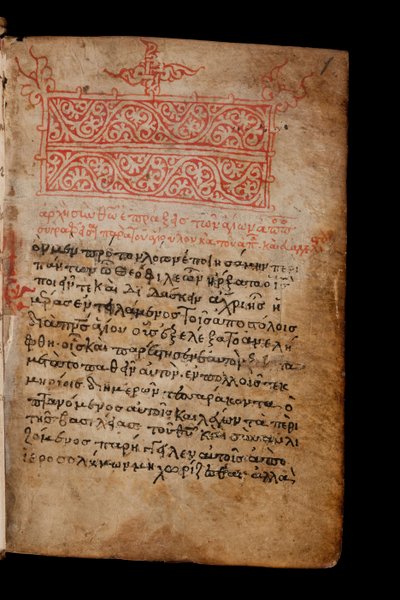 τῶν ἁγίων
ον μὲν πρῶτον λόγον ἐποιησάμην περὶ
πάντων ὦ Θεόφιλε ὧν ἤρξατο ὁ ις
ποιεῖν τε καὶ διδάσκειν ἄχρι ἧς ἡ
μέρας ἐντειλάμενος τοῖς ἀποστόλοις
διὰ πνς ἁγίου οὓς ἐξελέξατο ἀνελή
φθη· οἷς καὶ παρέστησεν ἑαυτὸν ζῶντα
μετὰ τὸ παθεῖν αὐτὸν ἐν πολλοῖς τεκ
μηρίοις δι ἡμερῶν τεσσαράκοντα ὀ
πτανόμενος αὐτοῖς καὶ λέγων τὰ περὶ
τῆς βασιλείας τοῦ θυ καὶ συναυλι
ζόμενος παρήγγειλεν αὐτοῖς ἀπὸ
ἱεροσολύμων μὴ χωρίζεσθαι ἀλλὰ